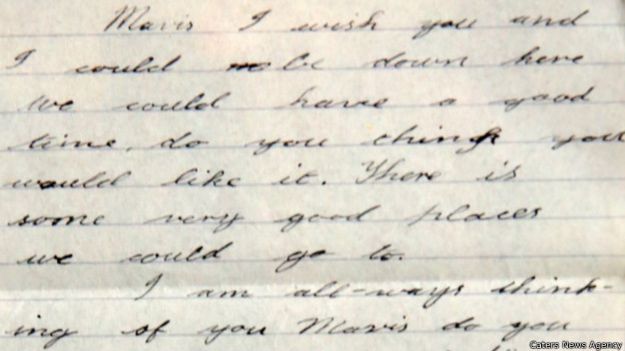 Mavis I wish you and
I could be down here
we could have a good
time. do you think you
would like it. There is
some very good places
we could go to.
I am all-ways think-
ing of you Mavis do you
Caters News Agency